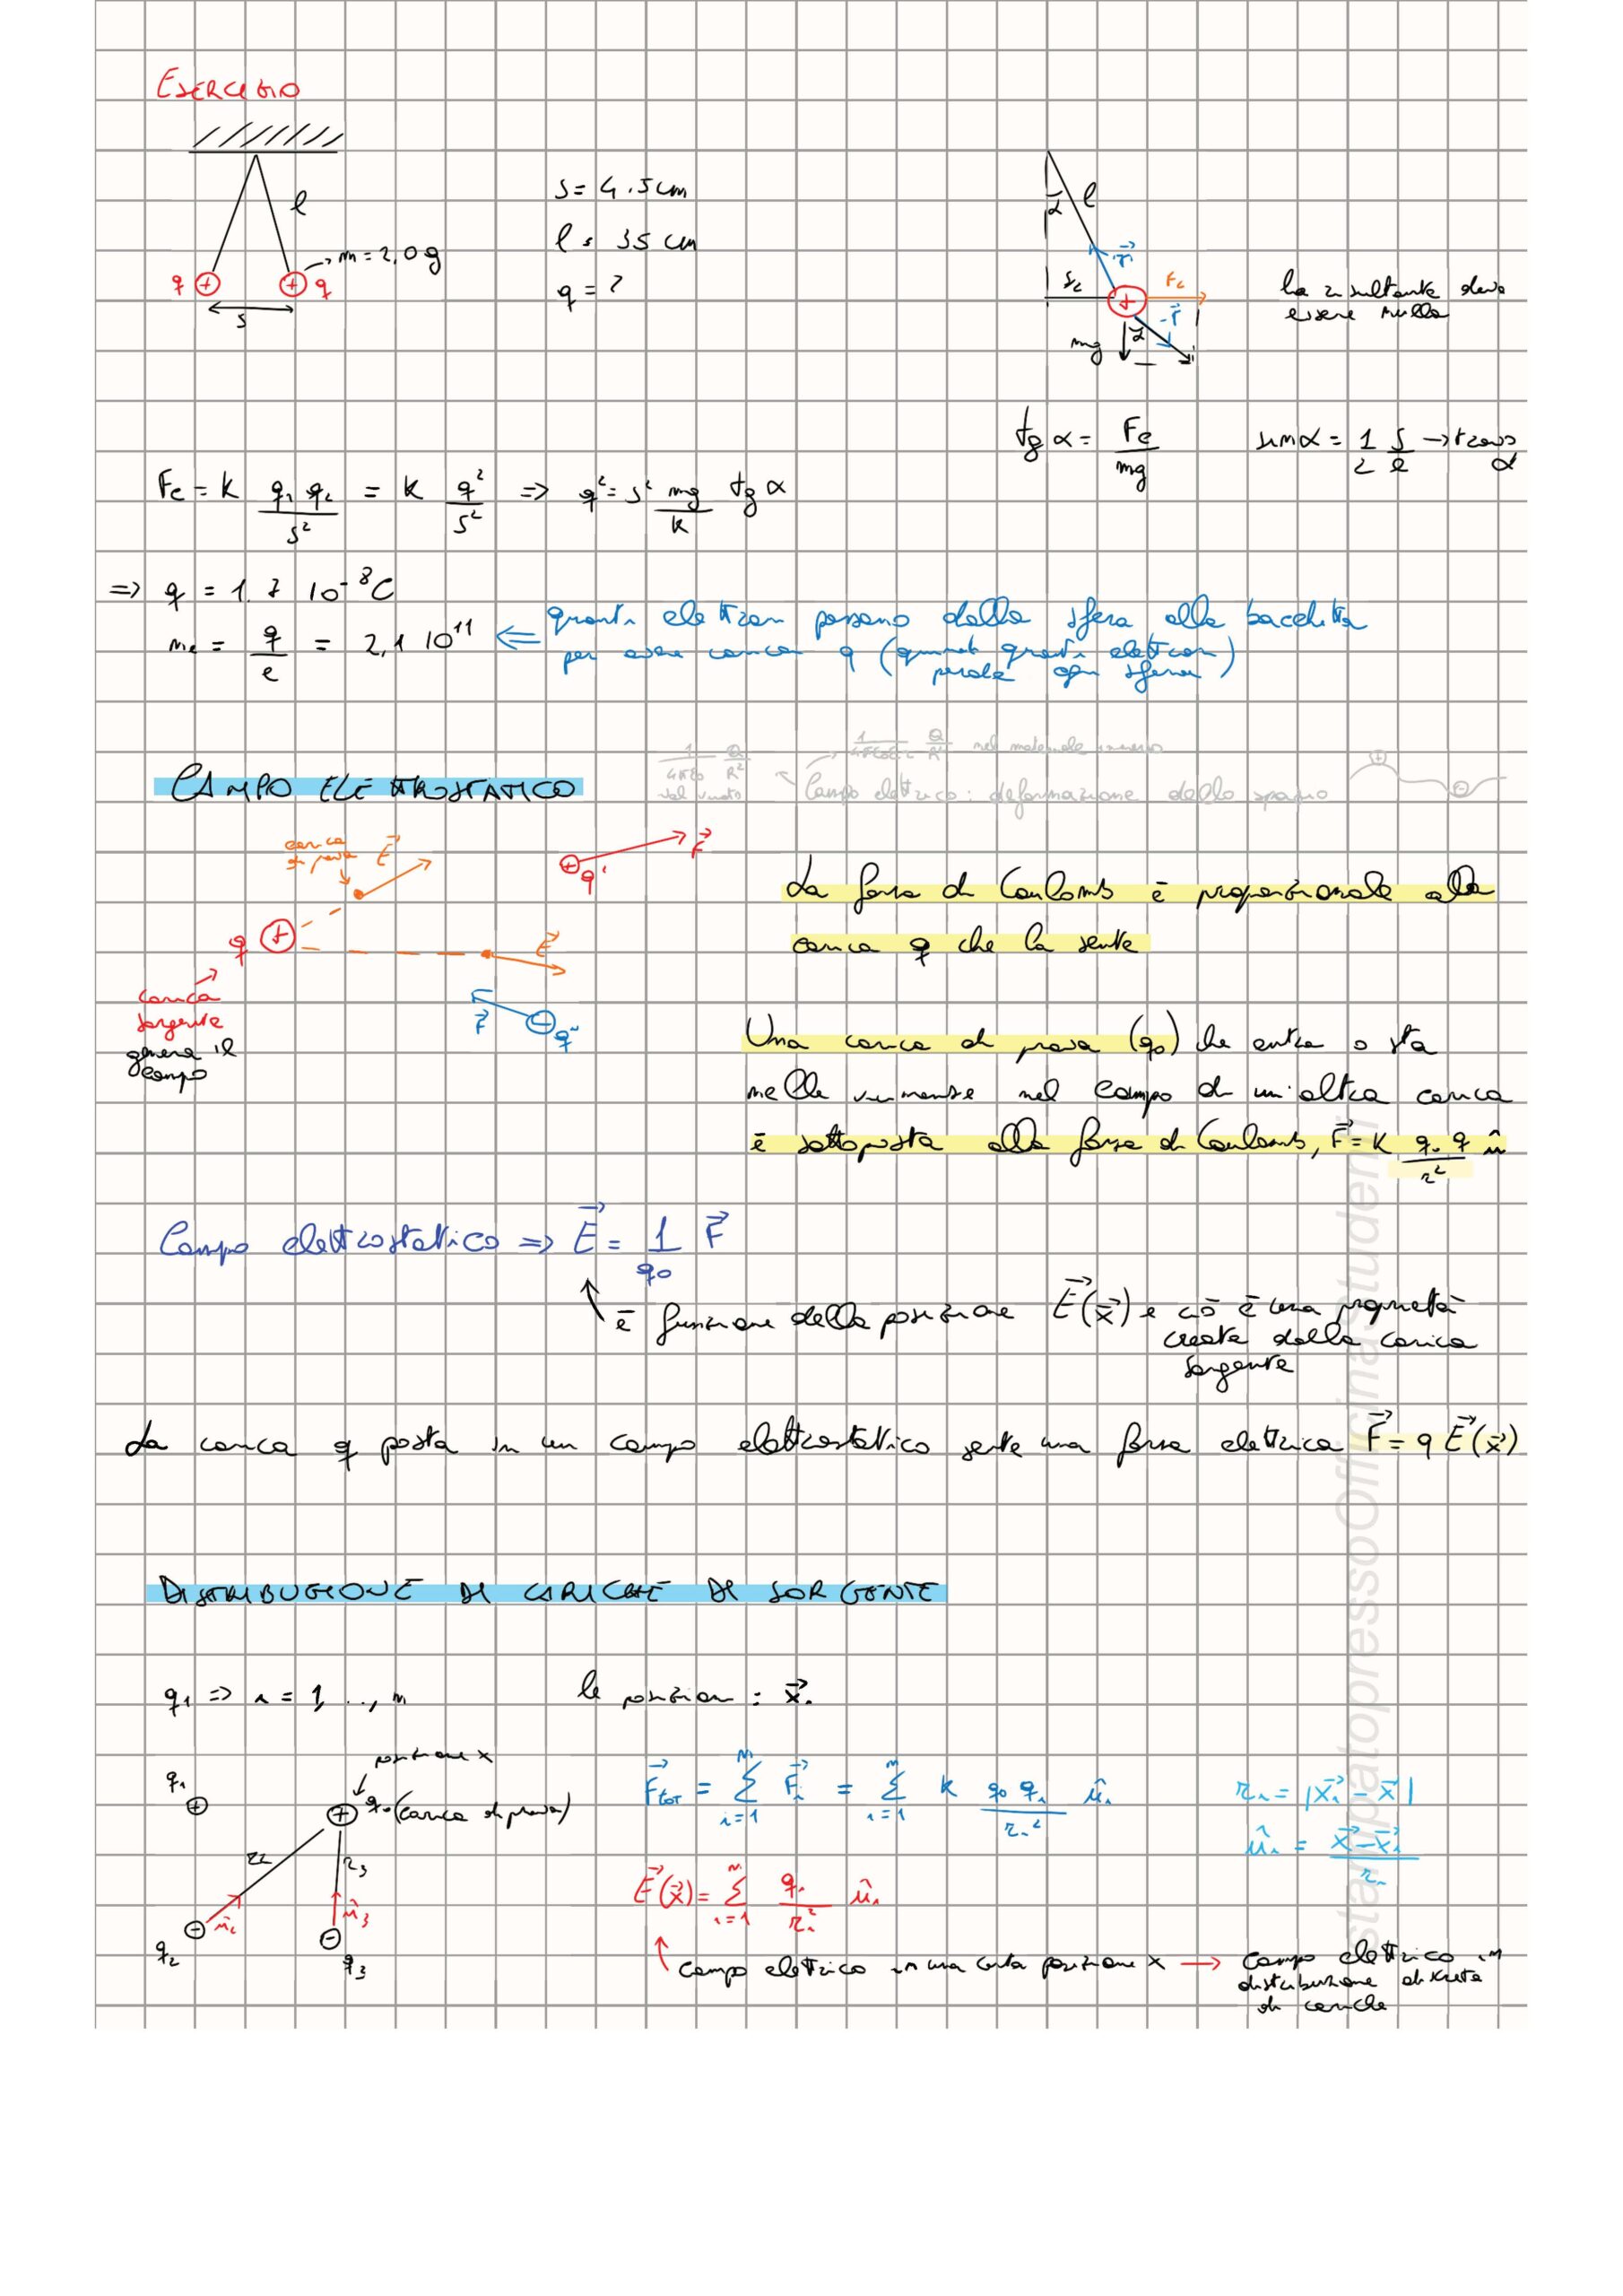 ESERCIZIO
l
m = 2,0 g
q
q
s
s = 4.5 cm
l = 35 cm
q = ?
α
l
T⃗
Fc
-T⃗
mg
α
la risultante deve
essere nulla
tg α = Fe/mg
sin α = 1/2 s/l → trovo α
Fc = k q₁ q₂/s² = k q²/s² => q² = s² mg/k tg α
=> q = 1.7 10⁻⁸ C
ne = q/e = 2,1 10¹¹ ⇐ quanti elettroni passano dalla sfera alla bacchetta
per avere carica q (quindi quanti elettroni
perde ogni sfera)
1/4πε₀ Q/R²
nel vuoto
nel materiale
Campo elettrico: deformazione dello spazio
CAMPO ELETTROSTATICO
carica
di prova
E⃗
q' F⃗
q
E⃗
F⃗
q"
carica
sorgente
genera il
campo
La forza di Coulomb è proporzionale alla
carica q che la sente
Una carica di prova (q₀) che entra o sta
nelle vicinanze nel campo di un'altra carica
è sottoposta alla forza di Coulomb, F⃗ = k q₀ q/r² û
Campo elettrostatico => E⃗ = 1/q₀ F⃗
è funzione della posizione E⃗(x⃗) e ciò è una proprietà
creata dalla carica
sorgente
La carica q posta in un campo elettrostatico sente una forza elettrica F⃗ = q E⃗(x⃗)
DISTRIBUZIONE DI CARICHE DI SORGENTE
qᵢ => i = 1, ..., n
le posizioni : x⃗ᵢ
posizione x
q₁
q₀ (carica di prova)
r₂
r₃
û₂
û₃
q₂
q₃
F⃗tot = Σ i=1 n F⃗ᵢ = Σ i=1 n k q₀ qᵢ/rᵢ² ûᵢ
rᵢ = |x⃗ᵢ - x⃗|
ûᵢ = x⃗ - x⃗ᵢ/rᵢ
E⃗(x⃗) = Σ i=1 n qᵢ/rᵢ² ûᵢ
campo elettrico in una certa posizione x → campo elettrico in
distribuzione discreta
di cariche
stampatopressoOfficinaStudenti